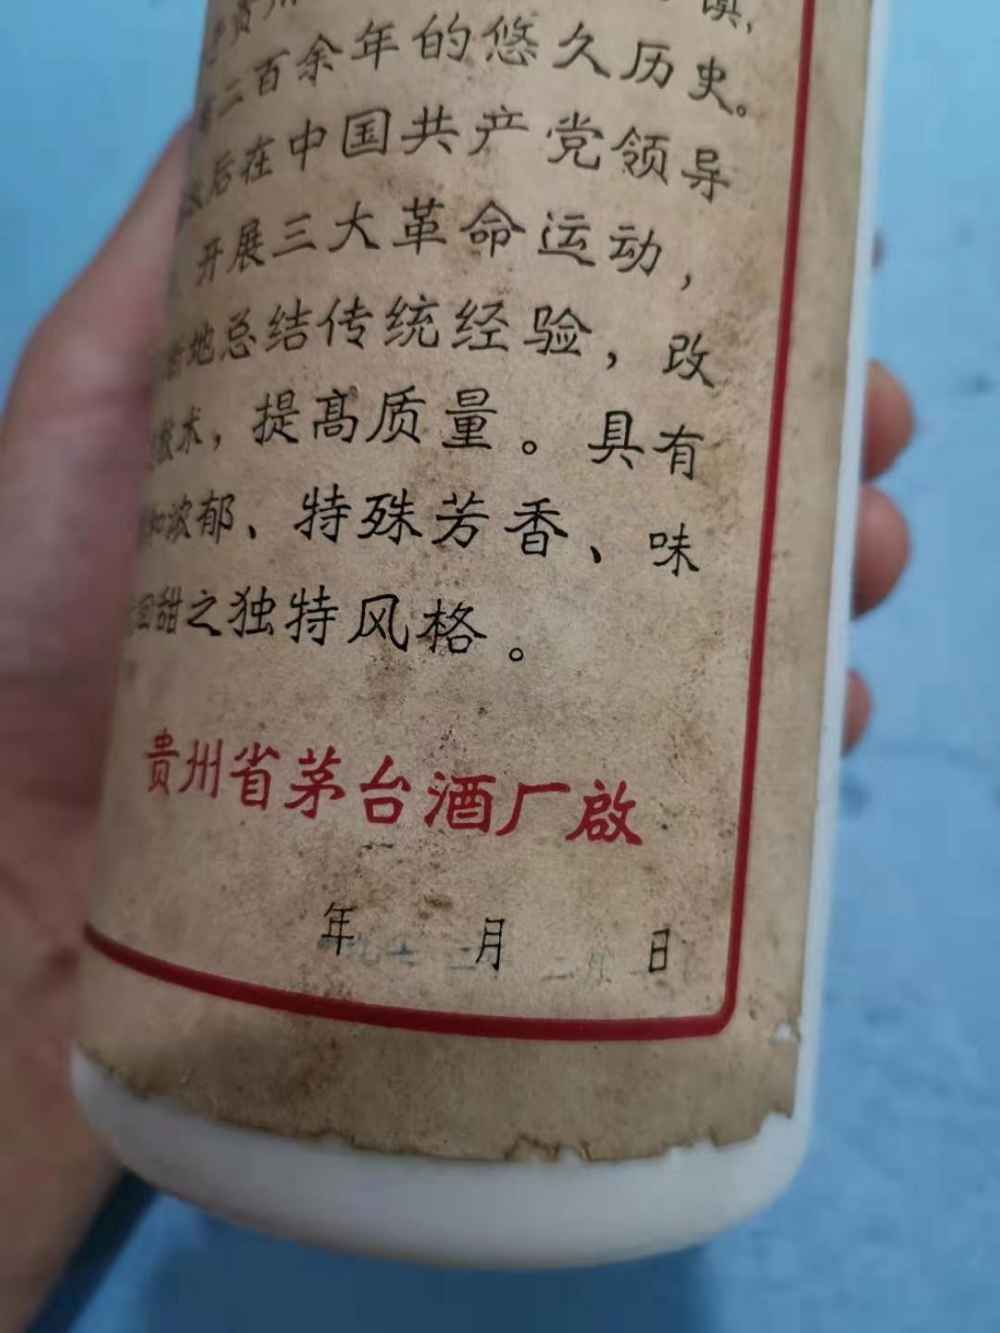 贵州
二百余年的悠久历史。
后在中国共产党领导
开展三大革命运动，
地总结传统经验，改
技术，提高质量。具有
和浓郁、特殊芳香、味
回甜之独特风格。
贵州省茅台酒厂啟
年 月 日